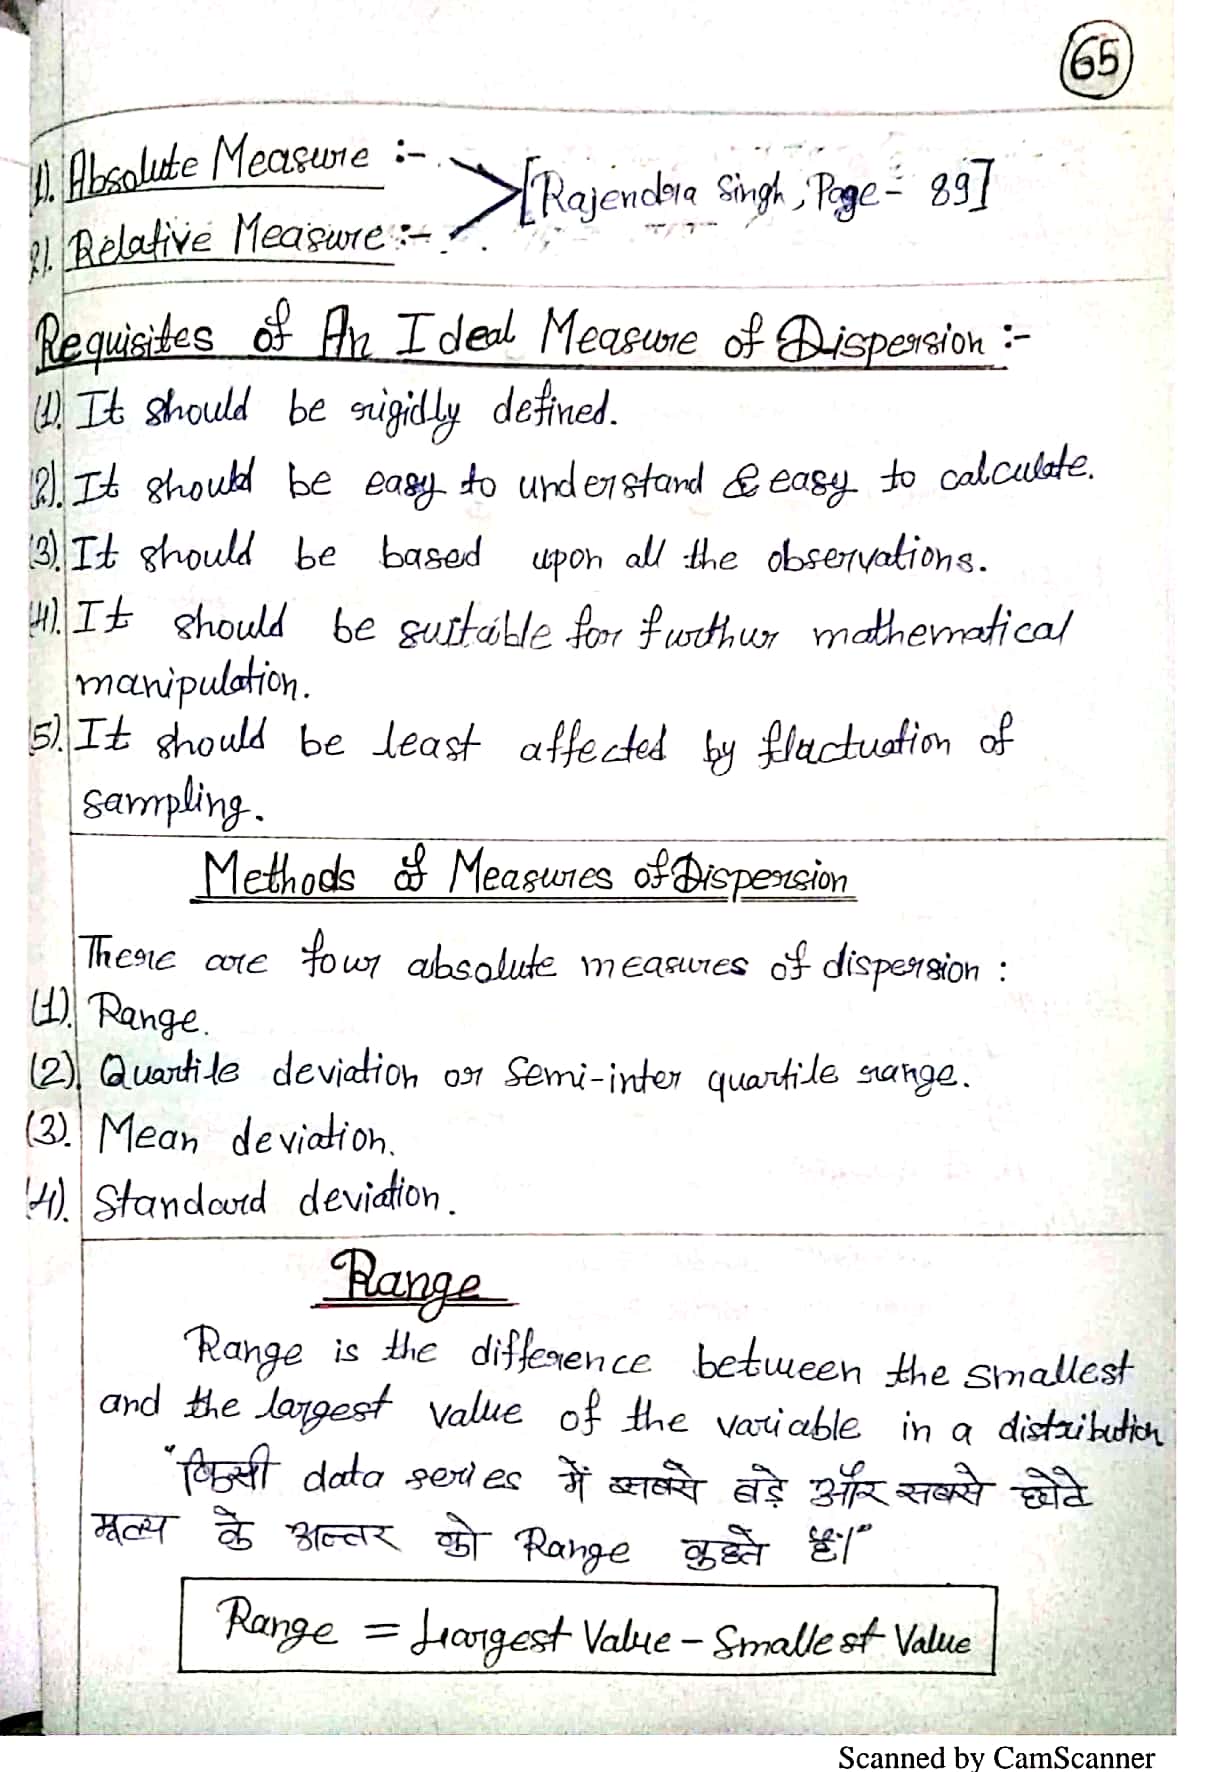 65
1). Absolute Measure :-
[Rajendra Singh, Page - 89]
2). Relative Measure :-
Requisites of An Ideal Measure of Dispersion :-
(1). It should be rigidly defined.
(2). It should be easy to understand & easy to calculate.
(3). It should be based upon all the observations.
(4). It should be suitable for furthur mathematical
manipulation.
(5). It should be least affected by fluctuation of
sampling.
Methods of Measures of Dispersion
There are four absolute measures of dispersion :
(1). Range.
(2). Quartile deviation or Semi-inter quartile range.
(3). Mean deviation.
(4). Standard deviation.
Range
Range is the difference between the smallest
and the largest value of the variable in a distribution
"किसी data series में सबसे बड़े और सबसे छोटे
मूल्य के अन्तर को Range कहते हैं।"
Range = Largest Value - Smallest Value
Scanned by CamScanner